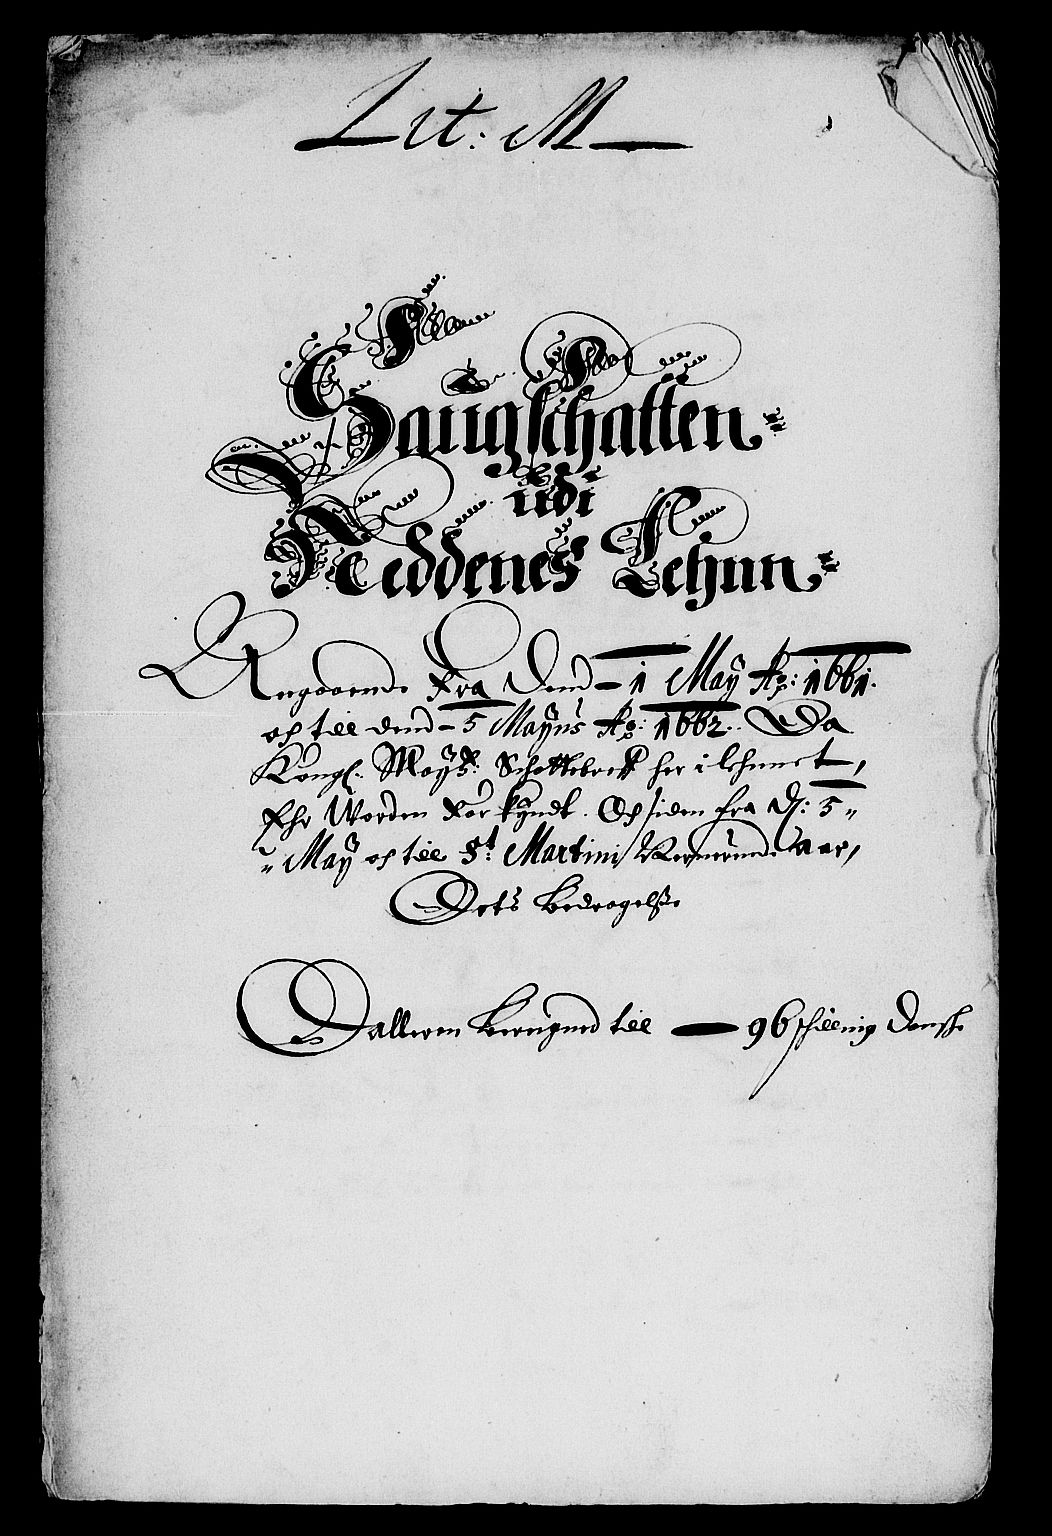 Lit: M
Saugschatten
udi
Neddenes Lehnn
Angaaende Fra Dend 1 May Ao: 1661.
och till dend 5 Mayus Ao: 1662. Da
Kongl: Mayts: Schattebreff her i lehnnet,
Ehr Worden Forkyndt. Och siden fra d: 5
May och till St: Martini aar,
Dets bedragelße
Dallerenn beregned till 96 schilling Danske